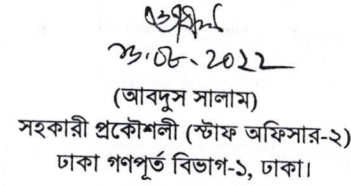 (আবদুস সালাম)
সহকারী প্রকৌশলী (স্টাফ অফিসার-২)
ঢাকা গণপূর্ত বিভাগ-১, ঢাকা।